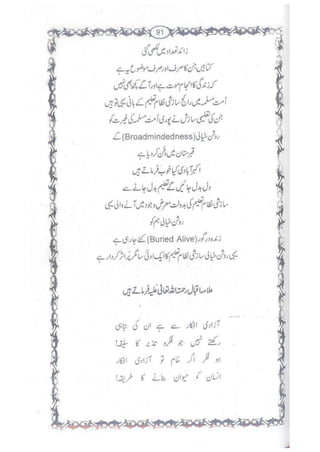 91
زائد تعداد میں لکھی گئی
کتابیں جن کا صرف اور صرف موضوع یہ ہے
کہ زندگی کا انجام موت ہے اور آگے کچھ بھی نہیں
اُمت مسلمہ میں رائج سازشی نظام تعلیم کے بانی یہی تو ہیں
جن کی تعلیمی سازش نے پوری اُمت مسلمہ کی غیرت کو
روشن خیالی (Broadmindedness) کے
قبرستان میں دفن کر دیا ہے
اکبر آبادی کیا خوب فرماتے ہیں
دل بدل جائیں گے تعلیم بدل جانے سے
سازشی نظام تعلیم کی بدولت معرض وجود میں آنے والی یہی
روشن خیالی ہم کو
زندہ درگور (Buried Alive) کئے جا رہی ہے
یہی روشن خیالی سازشی نظام تعلیم کا ایک ادنیٰ سا مگر پُر اثر کردار ہے
علامہ اقبال رحمتہ اللہ تعالیٰ علیہ فرماتے ہیں
آزادی افکار سے ہے ان کی تباہی
رکھتے نہیں جو فکر و تدبر کا سلیقہ!
ہو فکر اگر خام تو آزادی افکار
انسان کو حیوان بنانے کا طریقہ!